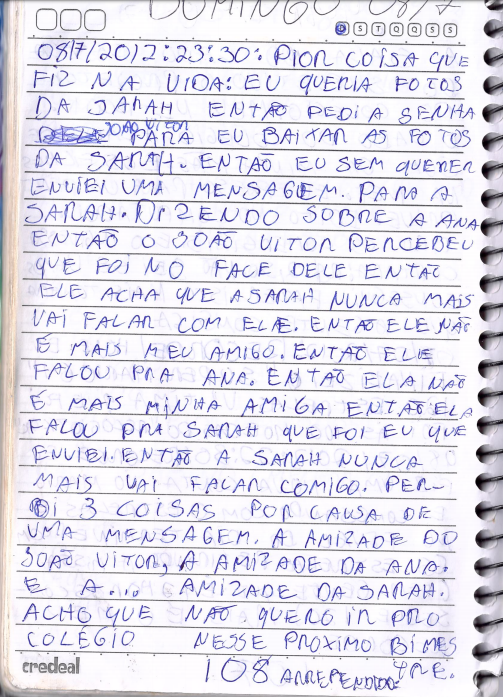 DOMINGO 08/7
D S T Q Q S S
08/7/2012:23:30: PIOR COISA QUE
FIZ NA VIDA: EU QUERIA FOTOS
DA SARAH ENTÃO PEDI A SENHA
JOÃO VITOR PARA EU BAIXAR AS FOTOS
DA SARAH. ENTÃO EU SEM QUERER
ENVIEI UMA MENSAGEM. PARA A
SARAH. DIZENDO SOBRE A ANA
ENTÃO O JOÃO VITOR PERCEBEU
QUE FOI NO FACE DELE ENTÃO
ELE ACHA QUE A SARAH NUNCA MAIS
VAI FALAR COM ELE. ENTÃO ELE NÃO
É MAIS MEU AMIGO. ENTÃO ELE
FALOU PRA ANA. ENTÃO ELA NÃO
É MAIS MINHA AMIGA ENTÃO ELA
FALOU PRA SARAH QUE FOI EU QUE
ENVIEI. ENTÃO A SARAH NUNCA
MAIS VAI FALAR COMIGO. PER-
DI 3 COISAS POR CAUSA DE
UMA MENSAGEM. A AMIZADE DO
JOÃO VITOR, A AMIZADE DA ANA.
E A... AMIZADE DA SARAH.
ACHO QUE NÃO QUERO IR PRO
COLÉGIO NESSE PROXIMO BIMES
TRE.
credeal 108 ARREPENDIDO